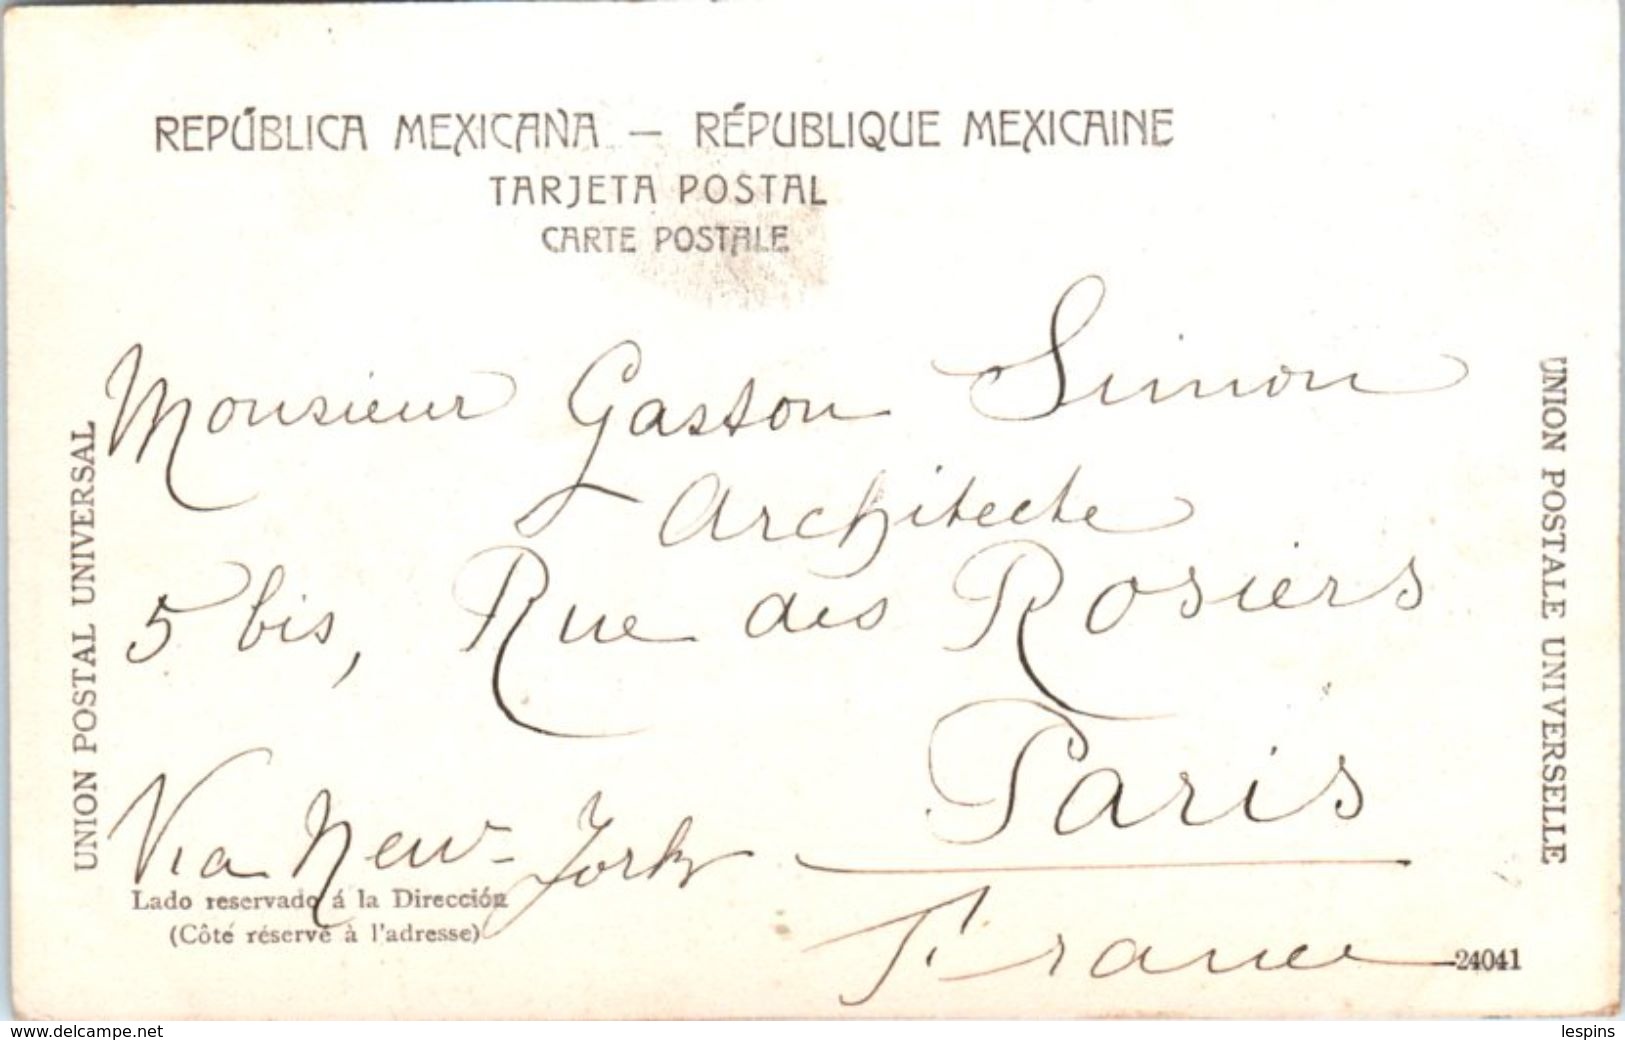 REPÚBLICA MEXICANA — RÉPUBLIQUE MEXICAINE
TARJETA POSTAL
CARTE POSTALE
UNION POSTAL UNIVERSAL
UNION POSTALE UNIVERSELLE
Monsieur Gaston Simon
Architecte
5 bis, Rue des Rosiers
Paris
Via New-York
France
Lado reservado á la Dirección
(Côté réservé à l'adresse)
24041
www.delcampe.net
lespins